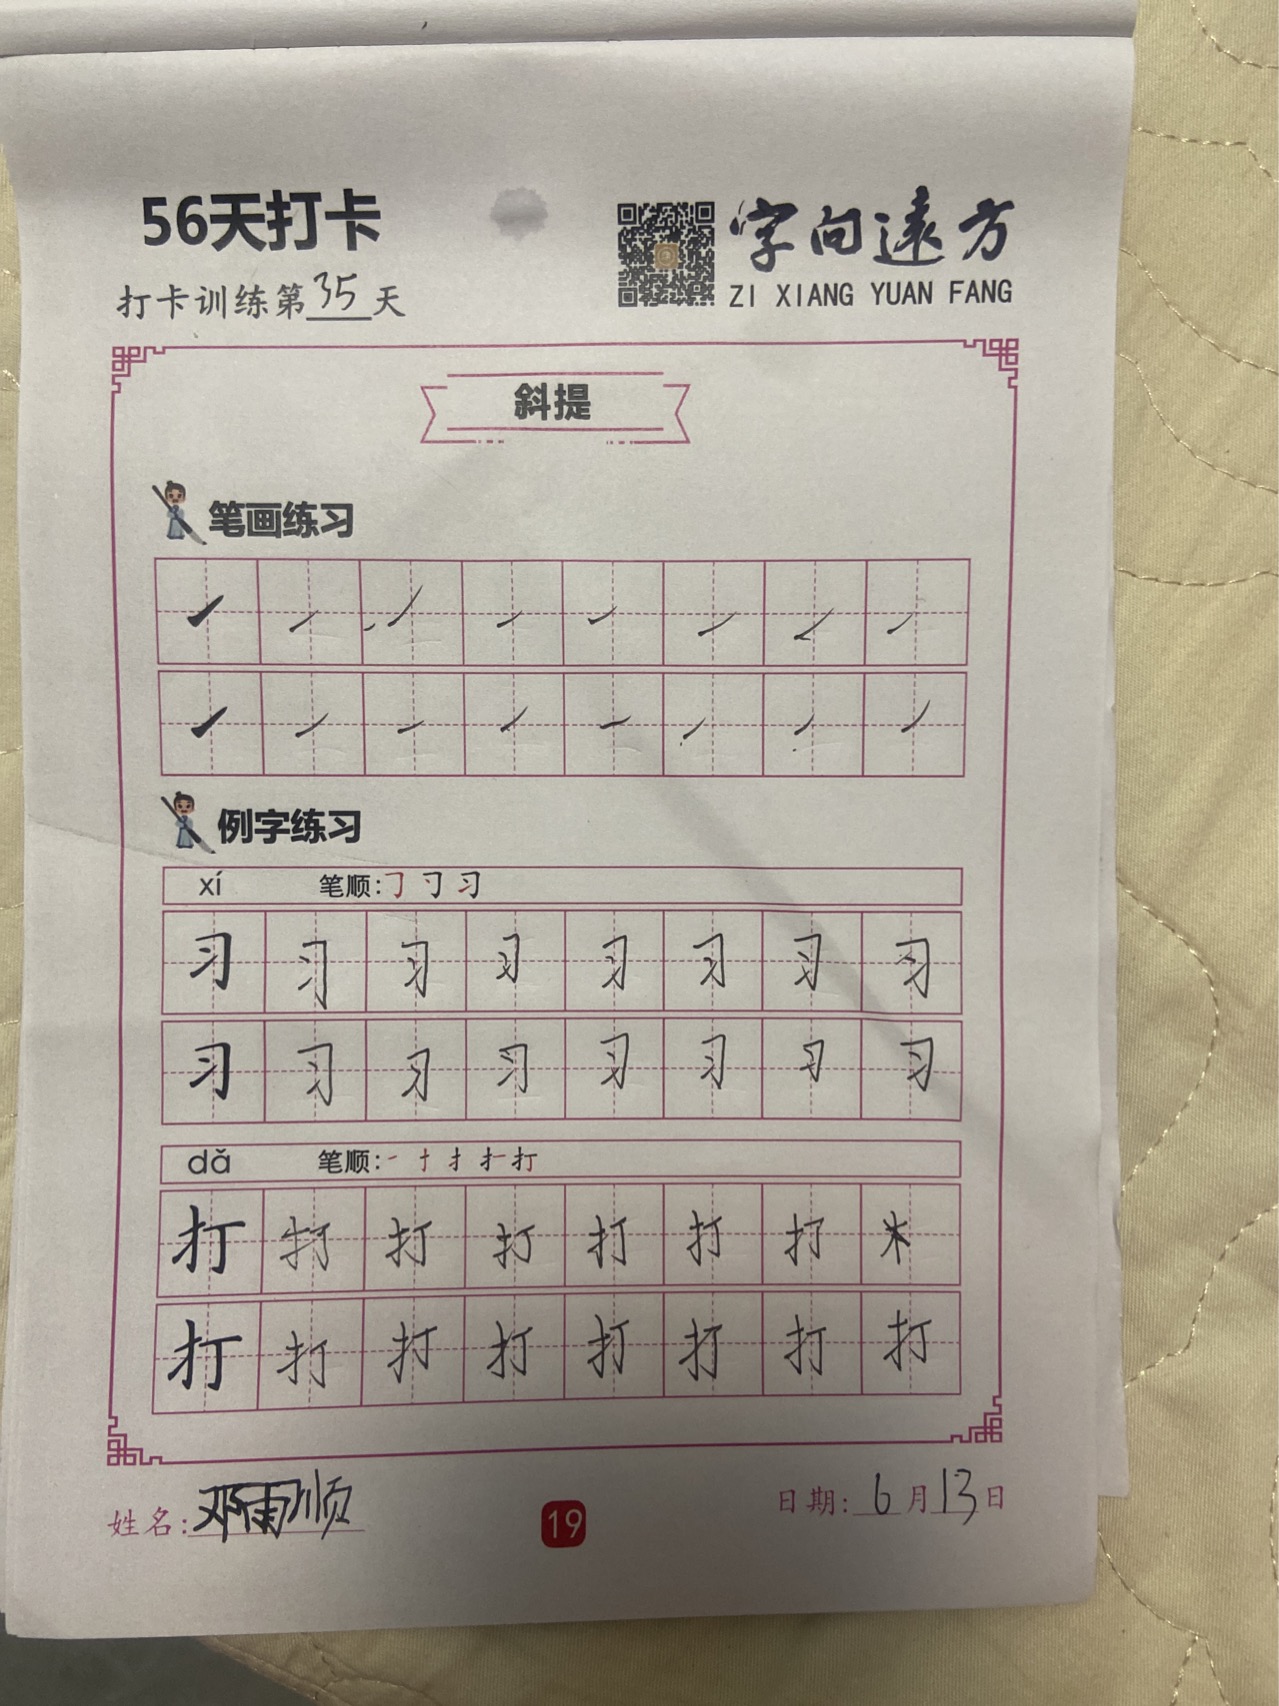 56天打卡
字向远方
打卡训练第35天
ZI XIANG YUAN FANG
斜提
笔画练习
例字练习
xí 笔顺:
习 习 习 习 习 习 习 习
习 习 习 习 习 习 习 习
dǎ 笔顺:
打 打 打 打 打 打 打 木
打 打 打 打 打 打 打 打
姓名:邓雨顺
19
日期:6月13日